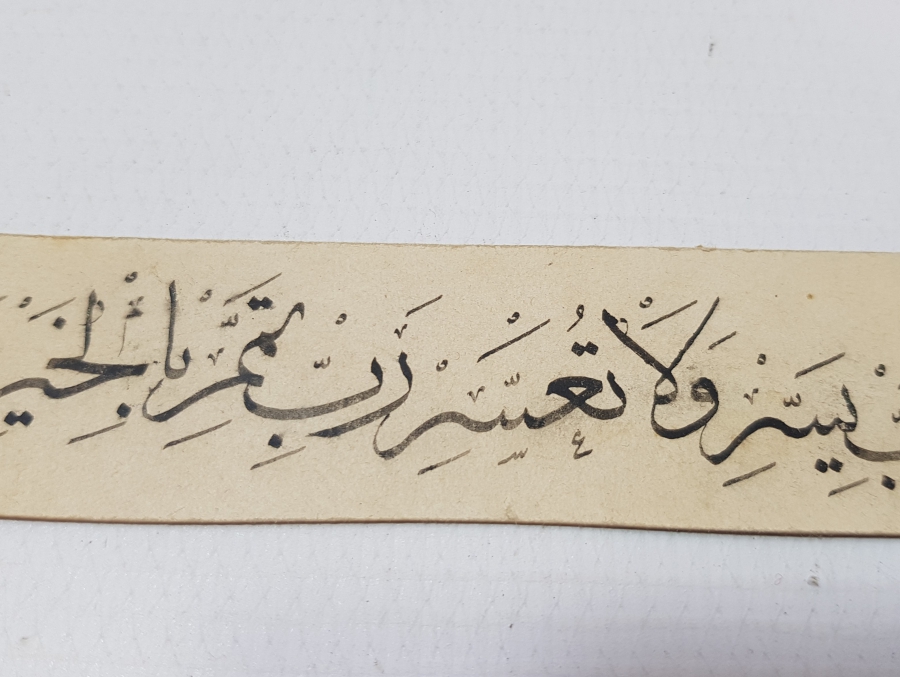 ب يَسِّرْ وَلَا تُعَسِّرْ رَبِّ تَمِّمْ بِالْخَيْر